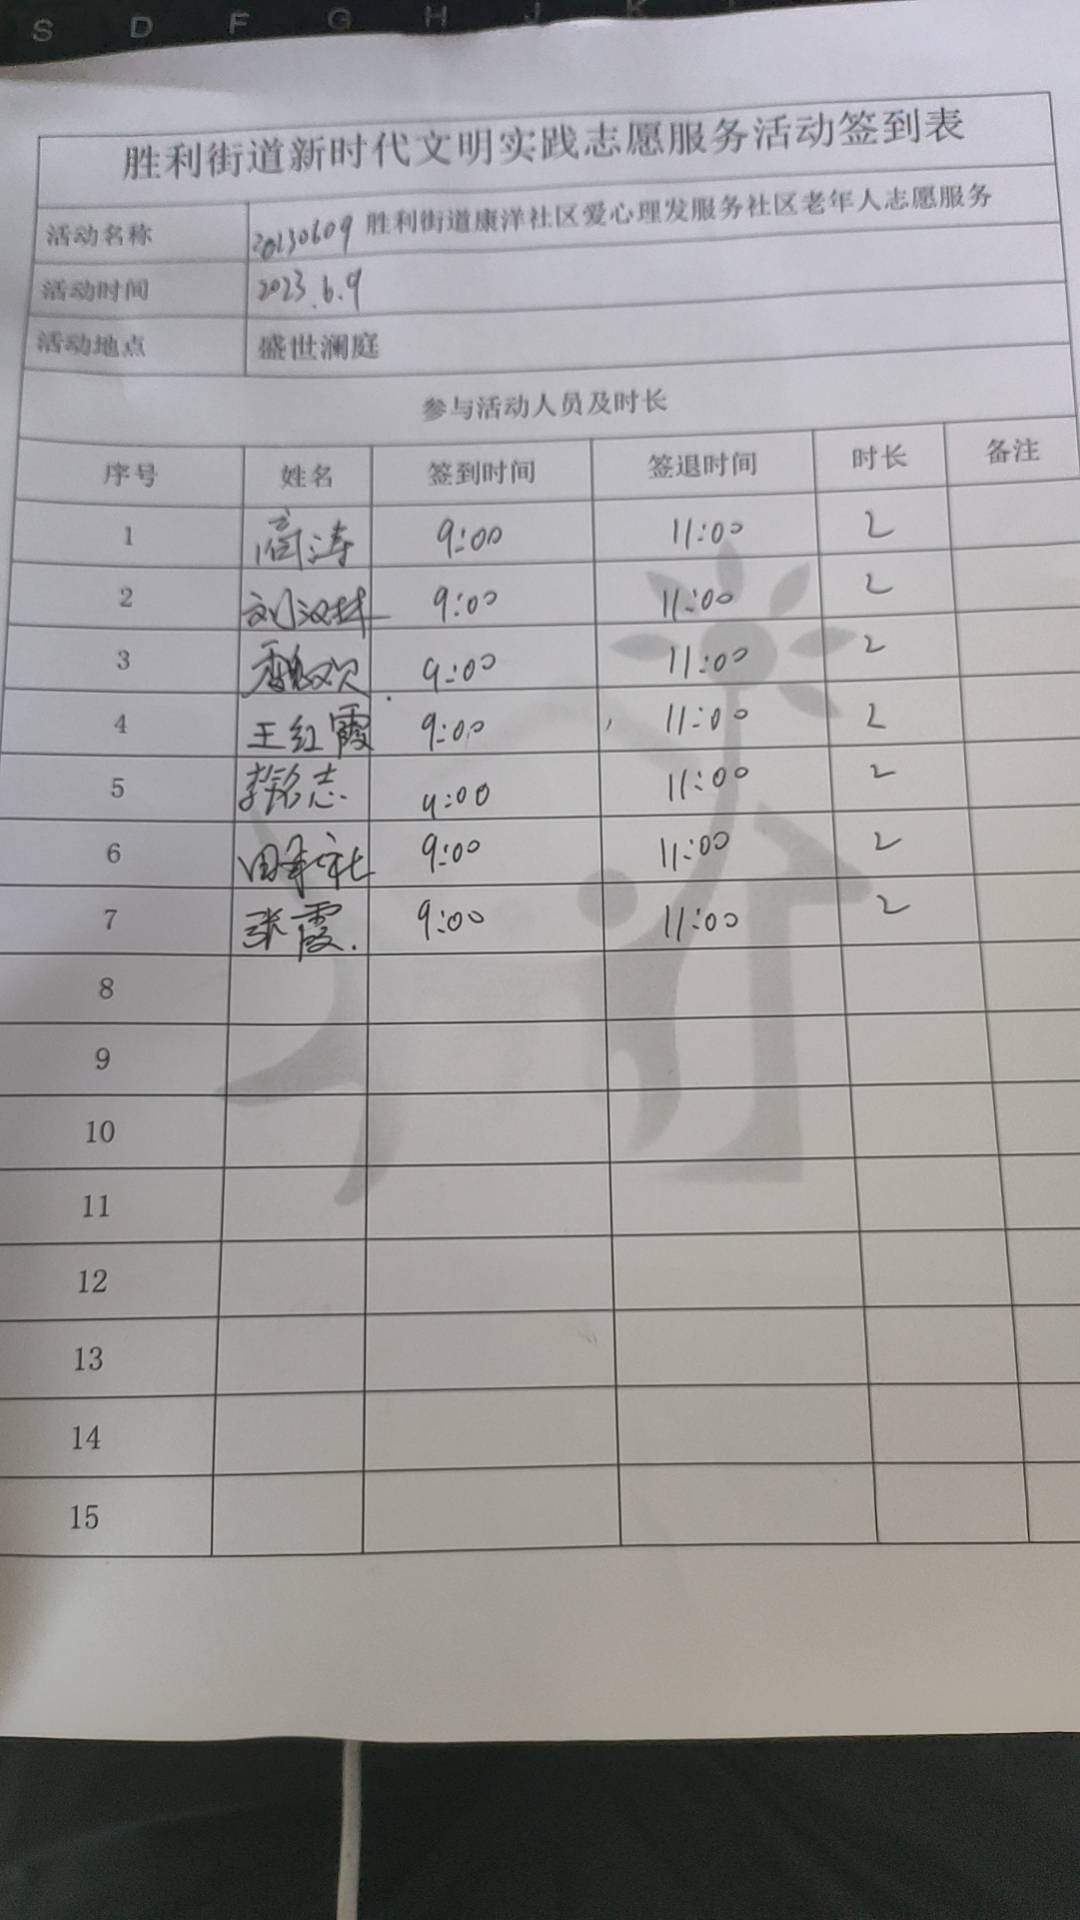 S D F G H J K
胜利街道新时代文明实践志愿服务活动签到表
活动名称 20230609 胜利街道康洋社区爱心理发服务社区老年人志愿服务
活动时间 2023.6.9
活动地点 盛世澜庭
参与活动人员及时长
序号 姓名 签到时间 签退时间 时长 备注
1 高涛 9:00 11:00 2
2 刘汉林 9:00 11:00 2
3 9:00 11:00 2
4 王红霞 9:00 11:00 2
5 李铭志 9:00 11:00 2
6 9:00 11:00 2
7 张霞. 9:00 11:00 2
8
9
10
11
12
13
14
15